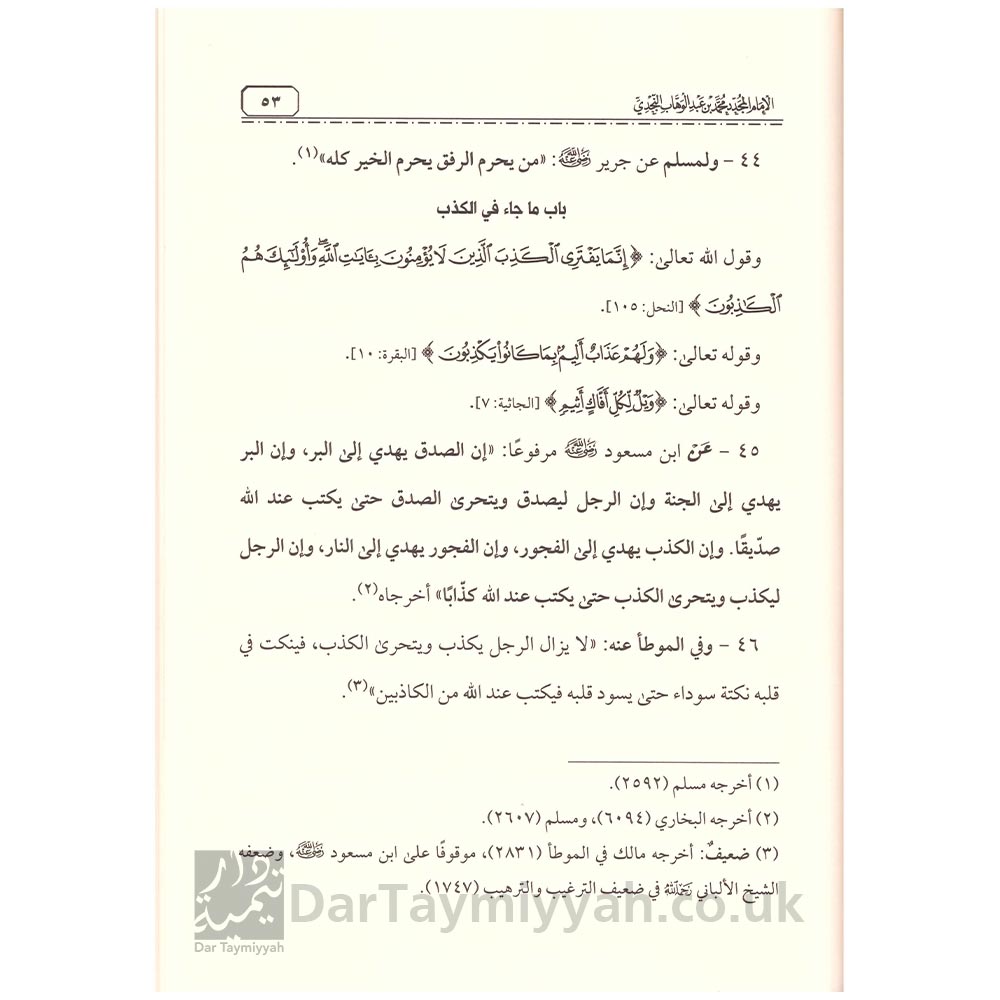 الإمام المجدد محمد بن عبد الوهاب النجدي
٥٣
٤٤ - ولمسلم عن جرير رضي الله عنه: «من يحرم الرفق يحرم الخير كله»(١).
باب ما جاء في الكذب
وقول الله تعالىٰ: ﴿إِنَّمَا يَفْتَرِى ٱلْكَذِبَ ٱلَّذِينَ لَا يُؤْمِنُونَ بِـَٔايَـٰتِ ٱللَّهِ ۖ وَأُو۟لَـٰٓئِكَ هُمُ
ٱلْكَـٰذِبُونَ﴾ [النحل: ١٠٥].
وقوله تعالىٰ: ﴿وَلَهُمْ عَذَابٌ أَلِيمٌۢ بِمَا كَانُوا۟ يَكْذِبُونَ﴾ [البقرة: ١٠].
وقوله تعالىٰ: ﴿وَيْلٌ لِّكُلِّ أَفَّاكٍ أَثِيمٍ﴾ [الجاثية: ٧].
٤٥ - عَنْ ابن مسعود رضي الله عنه مرفوعًا: «إن الصدق يهدي إلىٰ البر، وإن البر
يهدي إلىٰ الجنة وإن الرجل ليصدق ويتحرىٰ الصدق حتىٰ يكتب عند الله
صدّيقًا. وإن الكذب يهدي إلىٰ الفجور، وإن الفجور يهدي إلىٰ النار، وإن الرجل
ليكذب ويتحرىٰ الكذب حتىٰ يكتب عند الله كذّابًا» أخرجاه(٢).
٤٦ - وفي الموطأ عنه: «لا يزال الرجل يكذب ويتحرىٰ الكذب، فينكت في
قلبه نكتة سوداء حتىٰ يسود قلبه فيكتب عند الله من الكاذبين»(٣).
(١) أخرجه مسلم (٢٥٩٢).
(٢) أخرجه البخاري (٦٠٩٤)، ومسلم (٢٦٠٧).
(٣) ضعيفٌ: أخرجه مالك في الموطأ (٢٨٣١)، موقوفًا علىٰ ابن مسعود رضي الله عنه، وضعفه
الشيخ الألباني رحمه الله في ضعيف الترغيب والترهيب (١٧٤٧).
دار تيمية
Dar Taymiyyah
DarTaymiyyah.co.uk